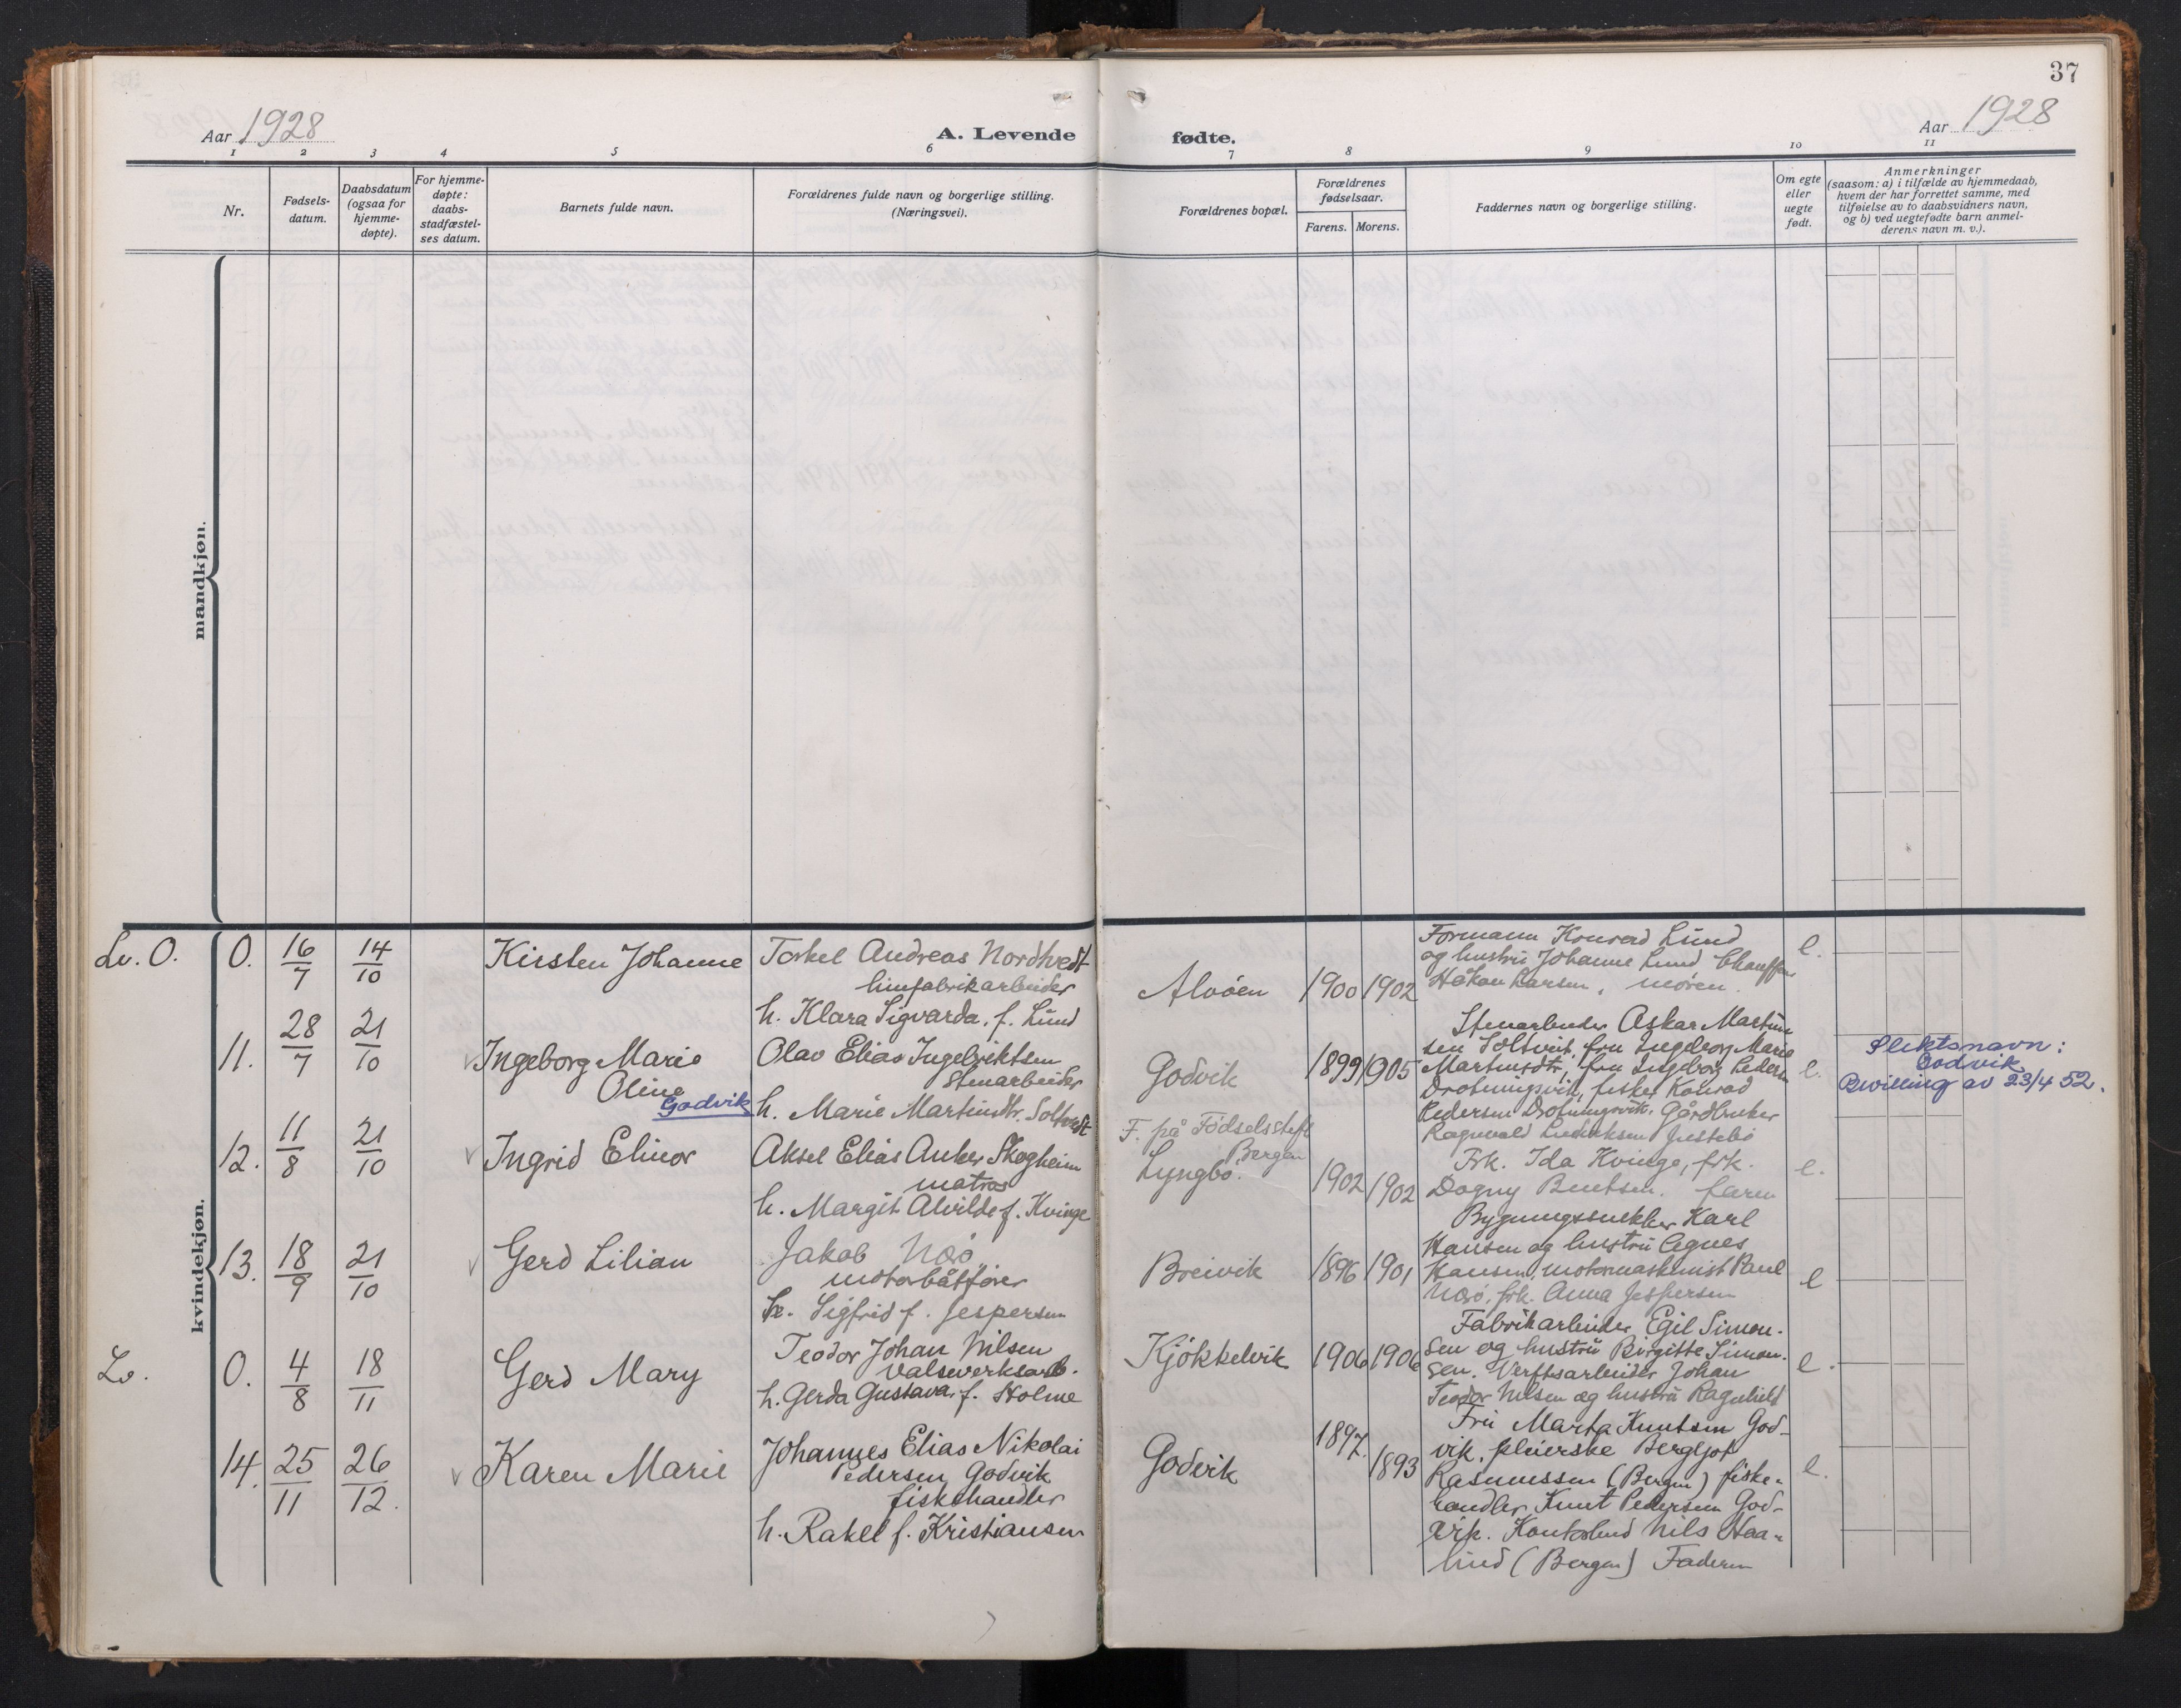 37
Aar 1928
A. Levende
fødte.
Aar 1928
1 2 3 4 5 6 7 8 9 10 11
Nr.
Fødsels-
datum.
Daabsdatum
(ogsaa for
hjemme-
døpte).
For hjemme-
døpte:
daabs-
stadfæstel-
ses datum.
Barnets fulde navn.
Forældrenes fulde navn og borgerlige stilling.
(Næringsvei).
Forældrenes bopæl.
Forældrenes
fødselsaar.
Farens. Morens.
Faddernes navn og borgerlige stilling.
Om egte
eller
uegte
født.
Anmerkninger
(saasom: a) i tilfælde av hjemmedaab,
hvem der har forrettet samme, med
tilføielse av to daabsvidners navn,
og b) ved uegtefødte barn anmel-
derens navn m. v.).
mandkjøn.
kvindekjøn.
Lv. O. O. 16/7 14/10
Kirsten Johanne
Torkel Andreas Nordtvedt
limfabrikarbeider
h. Klara Sigvarda, f. Lund
Alvøen 1900 1902
Formann Konrad Lund
og hustru Johanne Lund, Chauffør
Håkon Larsen, moren.
e.
11. 28/7 21/10
Ingeborg Marie
Oline
Godvik
Olav Elias Ingebriktsen
Stenarbeider
h. Marie Martinsdtr. Soltvedt
Godvik 1899 1905
Stenarbeider Askar Martin
sen Soltveit, fru Ingeborg Marie
Martinsdtr, fru Ingeborg Pedersen
Drotningsvik, fisker Konrad
Pedersen Drotningsvik. Gårdbruker
Ragnvald
e.
Slektsnavn:
Godvik
Bevilling av 23/4 52.
12. 11/8 21/10
Ingrid Elinor
Aksel Elias Anker Skogheim
matros
h. Margit Alvilde f. Kvinge
F. på Fødselsstift
Bergen
Lyngbø. 1902 1902
Frk. Ida Kvinge, frk.
Dagny Bentsen. faren
e.
13. 18/9 21/10
Gerd Lilian
Jakob Nøsø
motorbåtfører
h. Sigfrid f. Jespersen
Breivik 1896 1901
Bygningssnekker Karl
Hansen og hustru Agnes
Hansen, motormaskinist Paul
Nøsø, frk. Anna Jespersen
e
Lv. O. 4/8 18/11
Gerd Mary
Teodor Johan Nilsen
Valseverksarb.
h. Gerda Gustava, f. Holme
Kjøkkelvik 1906 1906
Fabrikarbeider Egil Simon-
sen og hustru Birgitte Simon-
sen. Verftsarbeider Johan
Teodor Nilsen og hustru Ragnhild
e.
14. 25/11 26/12.
Karen Marie
Johannes Elias Nikolai
Pedersen Godvik
fiskehandler
h. Rakel f. Kristiansen
Godvik 1897. 1893
Fru Marta Knutsen God-
vik, pleierske Bergljot
Rasmussen (Bergen) fiske-
handler Knut Pedersen God-
vik. Kontorbud Nils Haa-
(Bergen) Faderen
e.